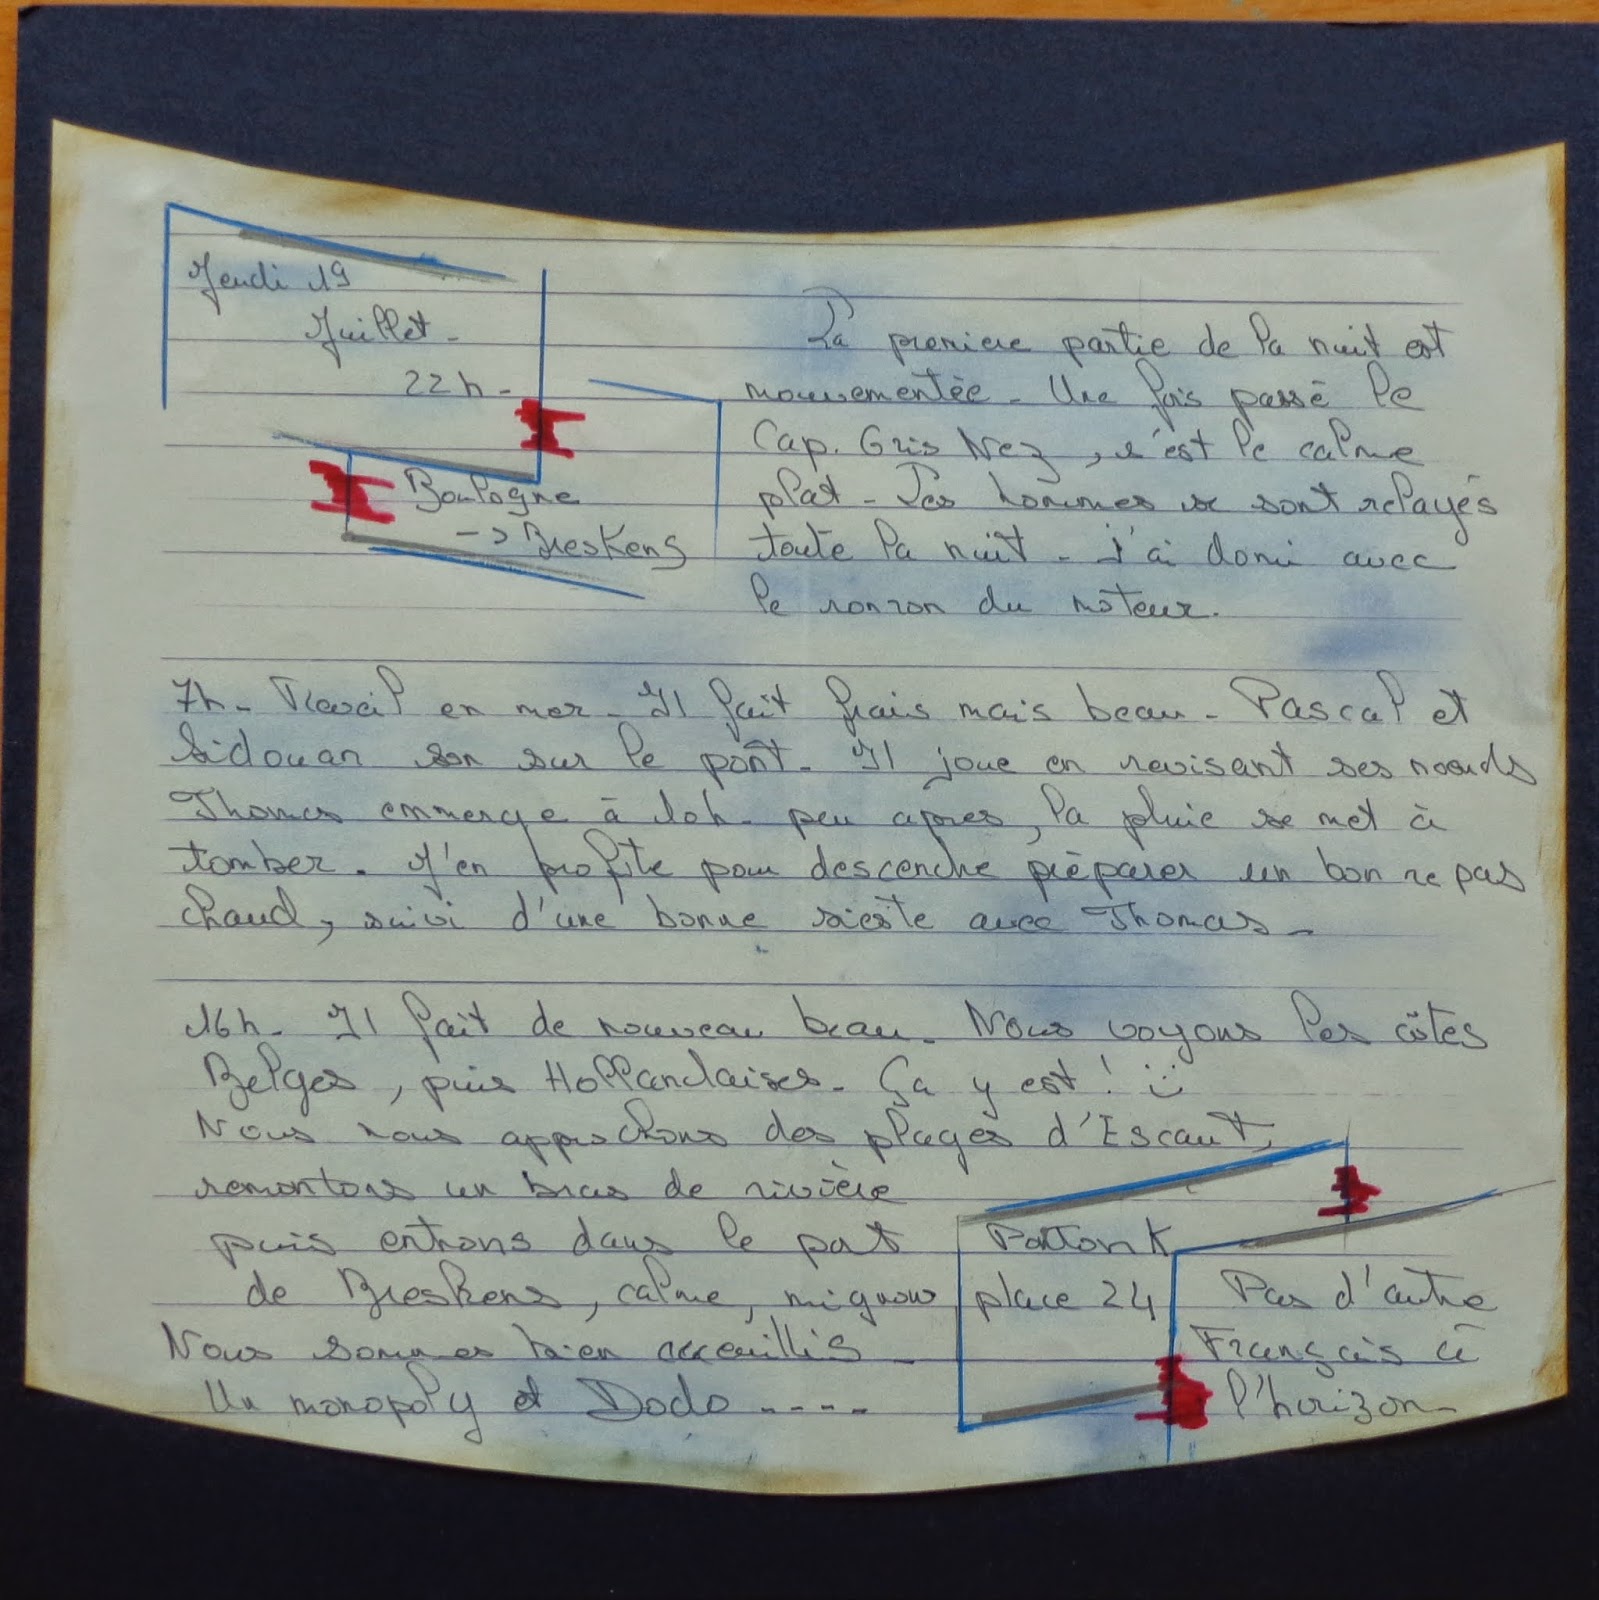 Jeudi 19
Juillet -
22h -
Boulogne
-> Breskens
La premiere partie de la nuit est
mouvementée - Une fois passé le
Cap. Gris Nez, c'est le calme
plat - Les hommes se sont relayés
toute la nuit - J'ai domi avec
le ronron du môteur.
7h - Travail en mer - Il fait frais mais beau - Pascal et
Sidouan son sur le pônt. Il joue en revisant ses noeuds
Thomas emmerge à 10h - peu apres, la pluie se met à
tomber. J'en profite pour descendre préparer un bon repas
chaud, suivi d'une bonne sieste avec Thomas -
16h - Il fait de nouveau beau. Nous voyons les côtes
Belges, puis Hollandaises - Ça y est !
Nous nous approchons des plages d'Escaut,
remontons un bras de rivière
puis entrons dans le port
de Breskens, calme, mignon
Nous sommes bien acceuillis -
Un monopoly et Dodo ----
Ponton K
place 24
Pas d'autre
Français à
l'horizon -